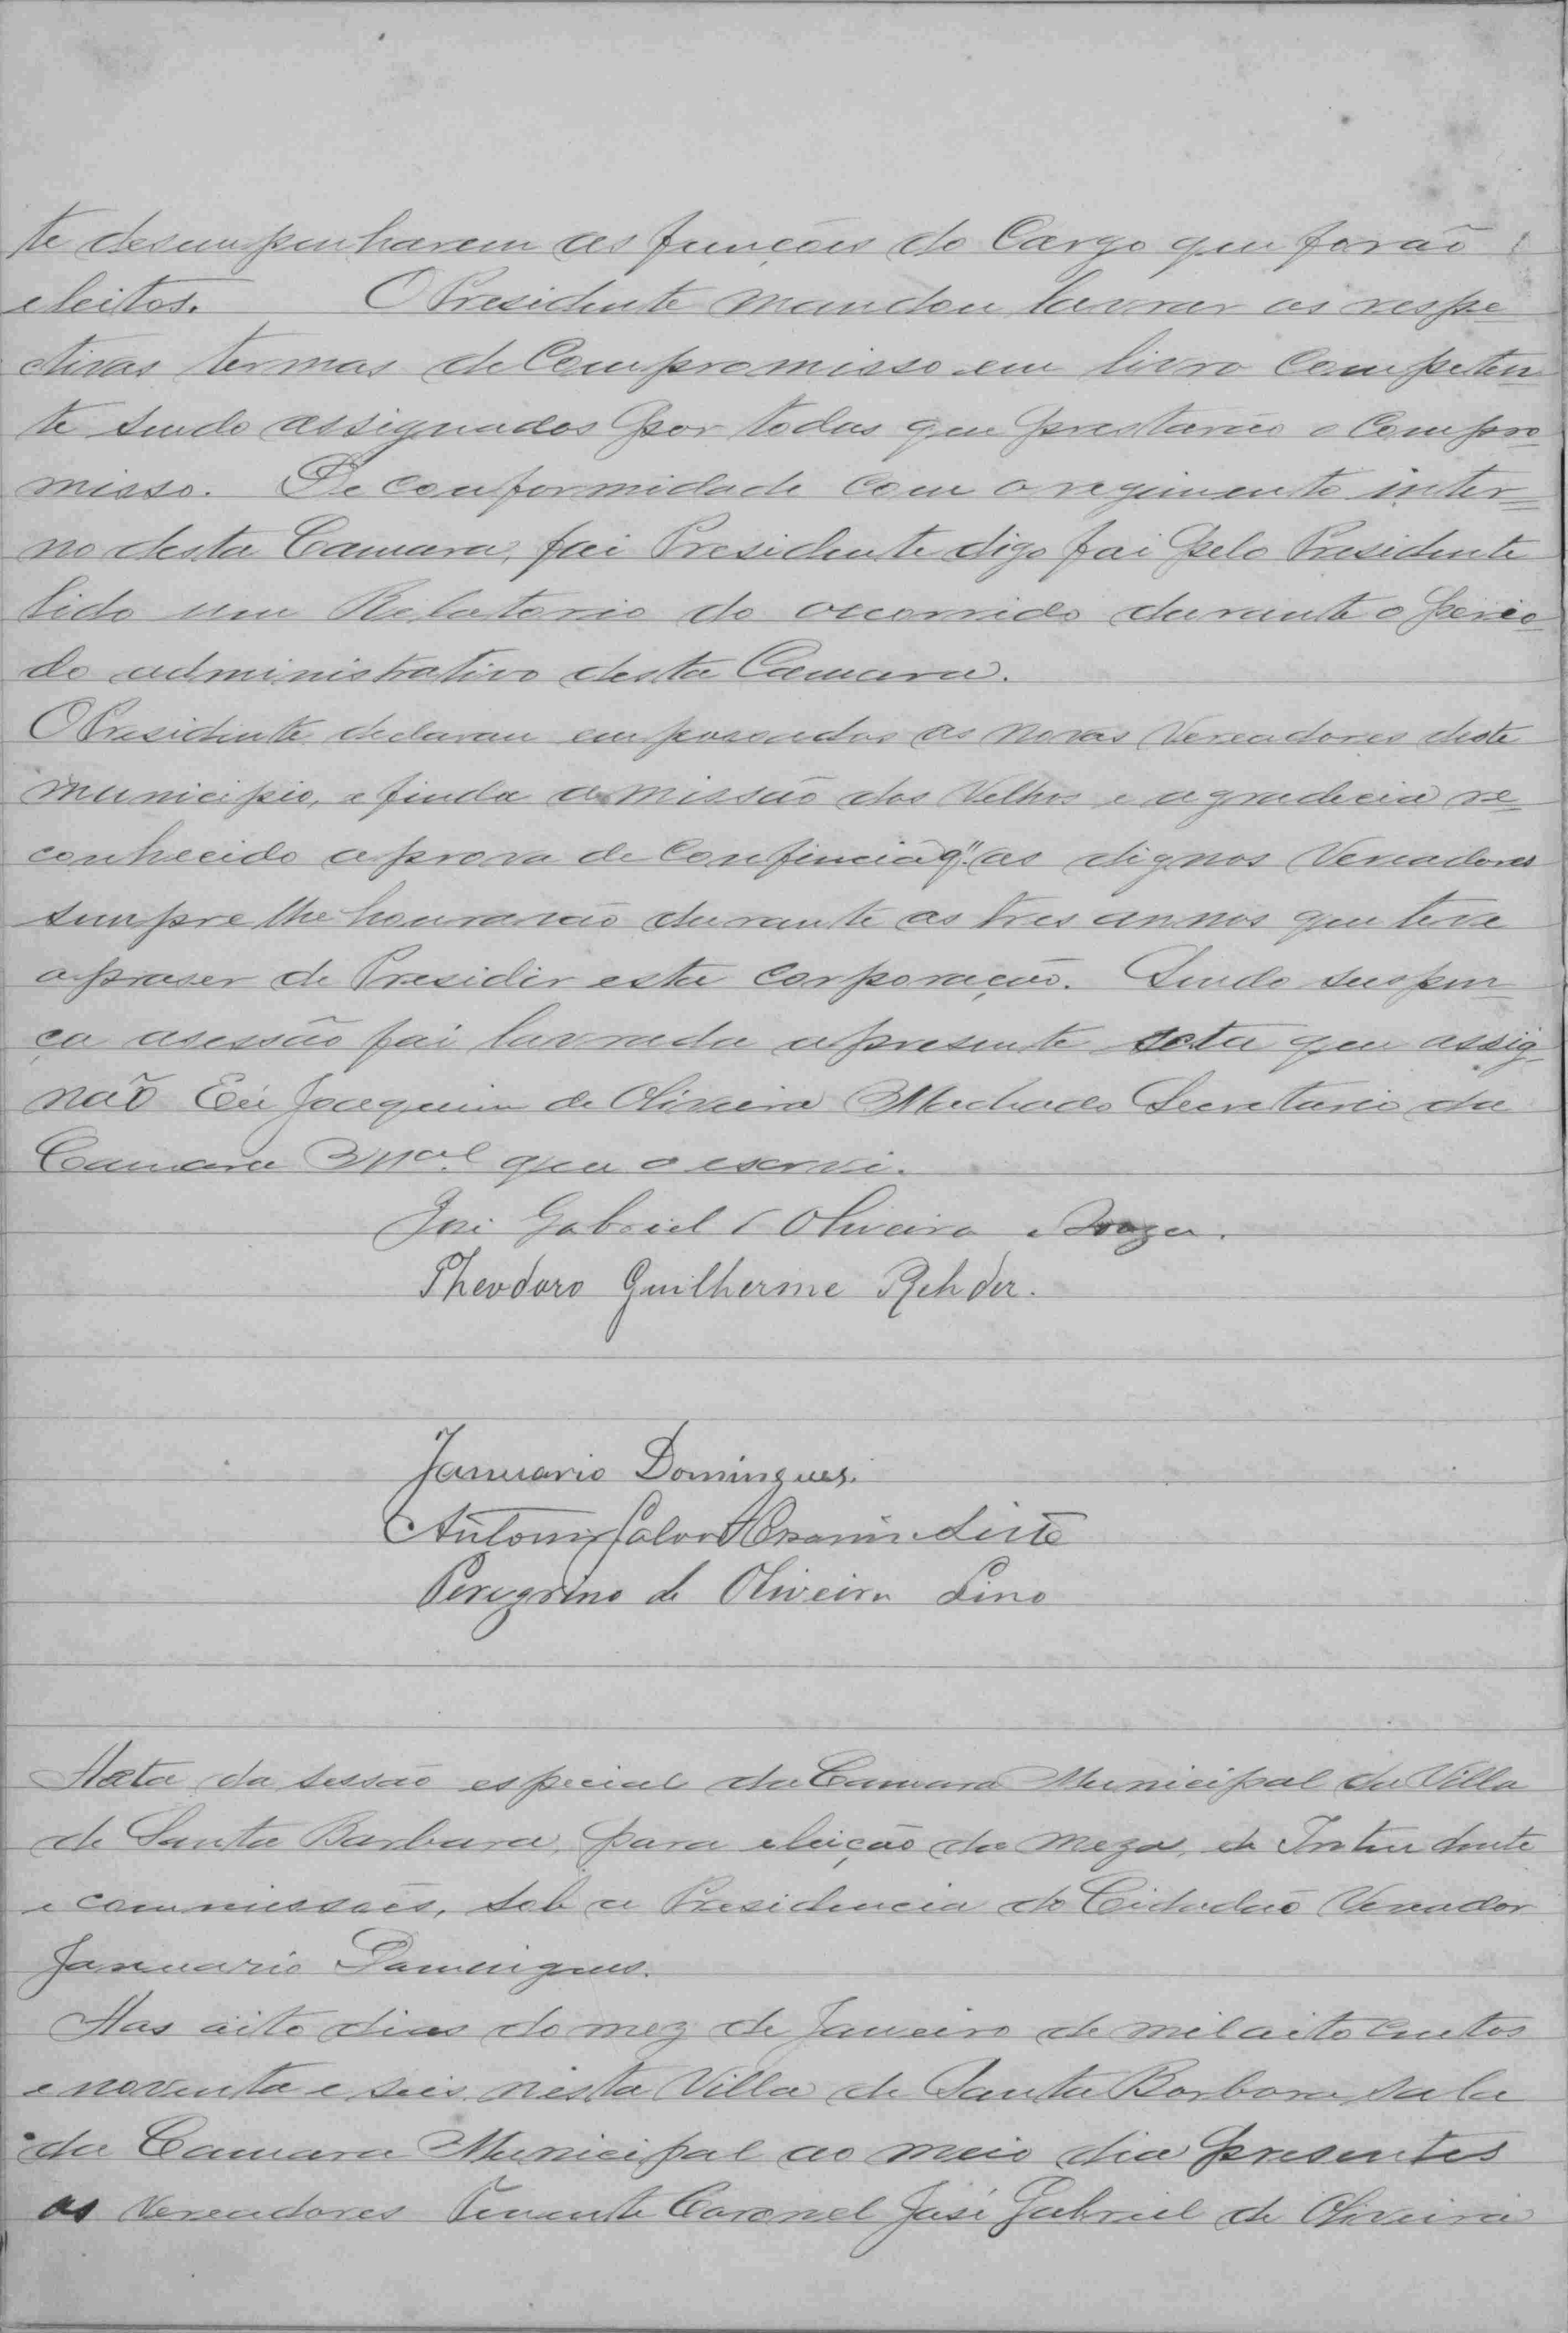 te desempenharem as funções do Cargo que forão
eleitos. O Presidente mandou lavrar os respe-
ctivos termos de Compromisso em livro Competen
te sendo assignados por todos que prestarão o Compro-
misso. De conformidade com o regimento inter=
no desta Camara, foi Presidente digo foi pelo Presidente
lido um Relatorio do occorrido durante o perio-
do administrativo desta Camara.
O Presidente declarou empossados os novos Vereadores deste
municipio, e finda a missão dos Velhos e agradecia re-
conhecido a prova de Confiencia q" os dignos Vereadores
sempre lhe honrarão durante os tres annos que teve
o praser de Presidir esta corporação. Sendo suspen-
ça a sessão foi lavrada a presente acta que assig-
não Eu Joaquim de Oliveira Machado Secretario da
Camara Mcal que o escrvi.
José Gabriel d'Oliveira e Souza.
Theodoro Guilherme Rehder.
Januario Domingues.
Antonio Leite
Peregrino de Oliveira Lino
Acta da sessão especial da Camara Municipal da Villa
de Santa Barbara, para eleição da meza, de Intendente
e commissoẽs, sob a Presidencia do Cidadão Vereador
Januario Domingues.
Aos oito dias do mez de Janeiro de mil oito centos
e noventa e seis nesta Villa de Santa Barbara sala
da Camara Municipal ao meio dia presentes
os Vereadores Tenente Coronel José Gabriel de Oliveira